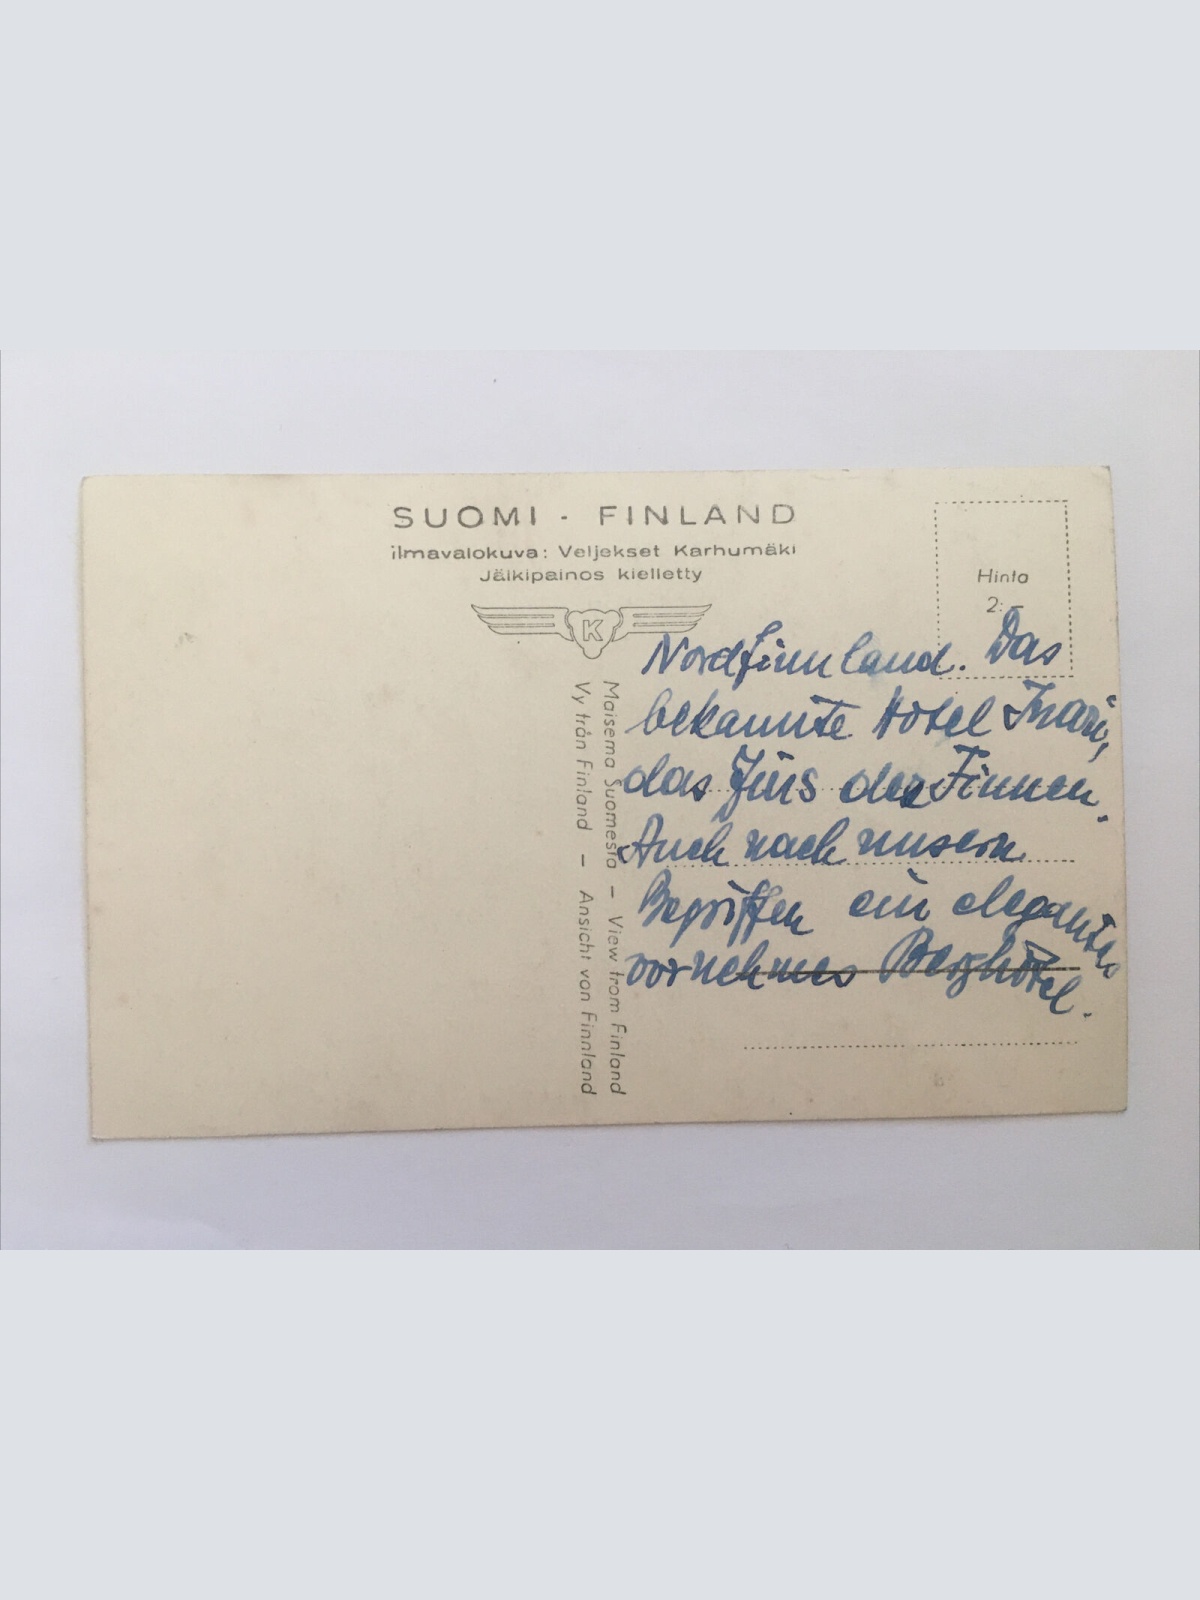 SUOMI - FINLAND
ilmavalokuva: Veljekset Karhumäki
Jälkipainos kielletty
K
Hinta
2:-
Maisema Suomesta – View from Finland
Vy från Finland – Ansicht von Finnland
Nordfinnland. Das
bekannte Hotel Inari,
das der Finnen.
Auch nach unsern
Begriffen ein elegantes
vornehmes Berghotel.